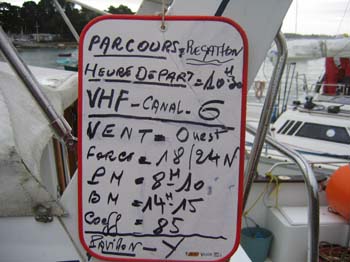 PARCOURS = REGATHON
HEURE DEPART = 10H30
VHF - CANAL - 6
VENT = Ouest
FORCE = 18/24 N
PM = 8H10
BM = 14H15
Coeff = 85
PAVILLON - Y